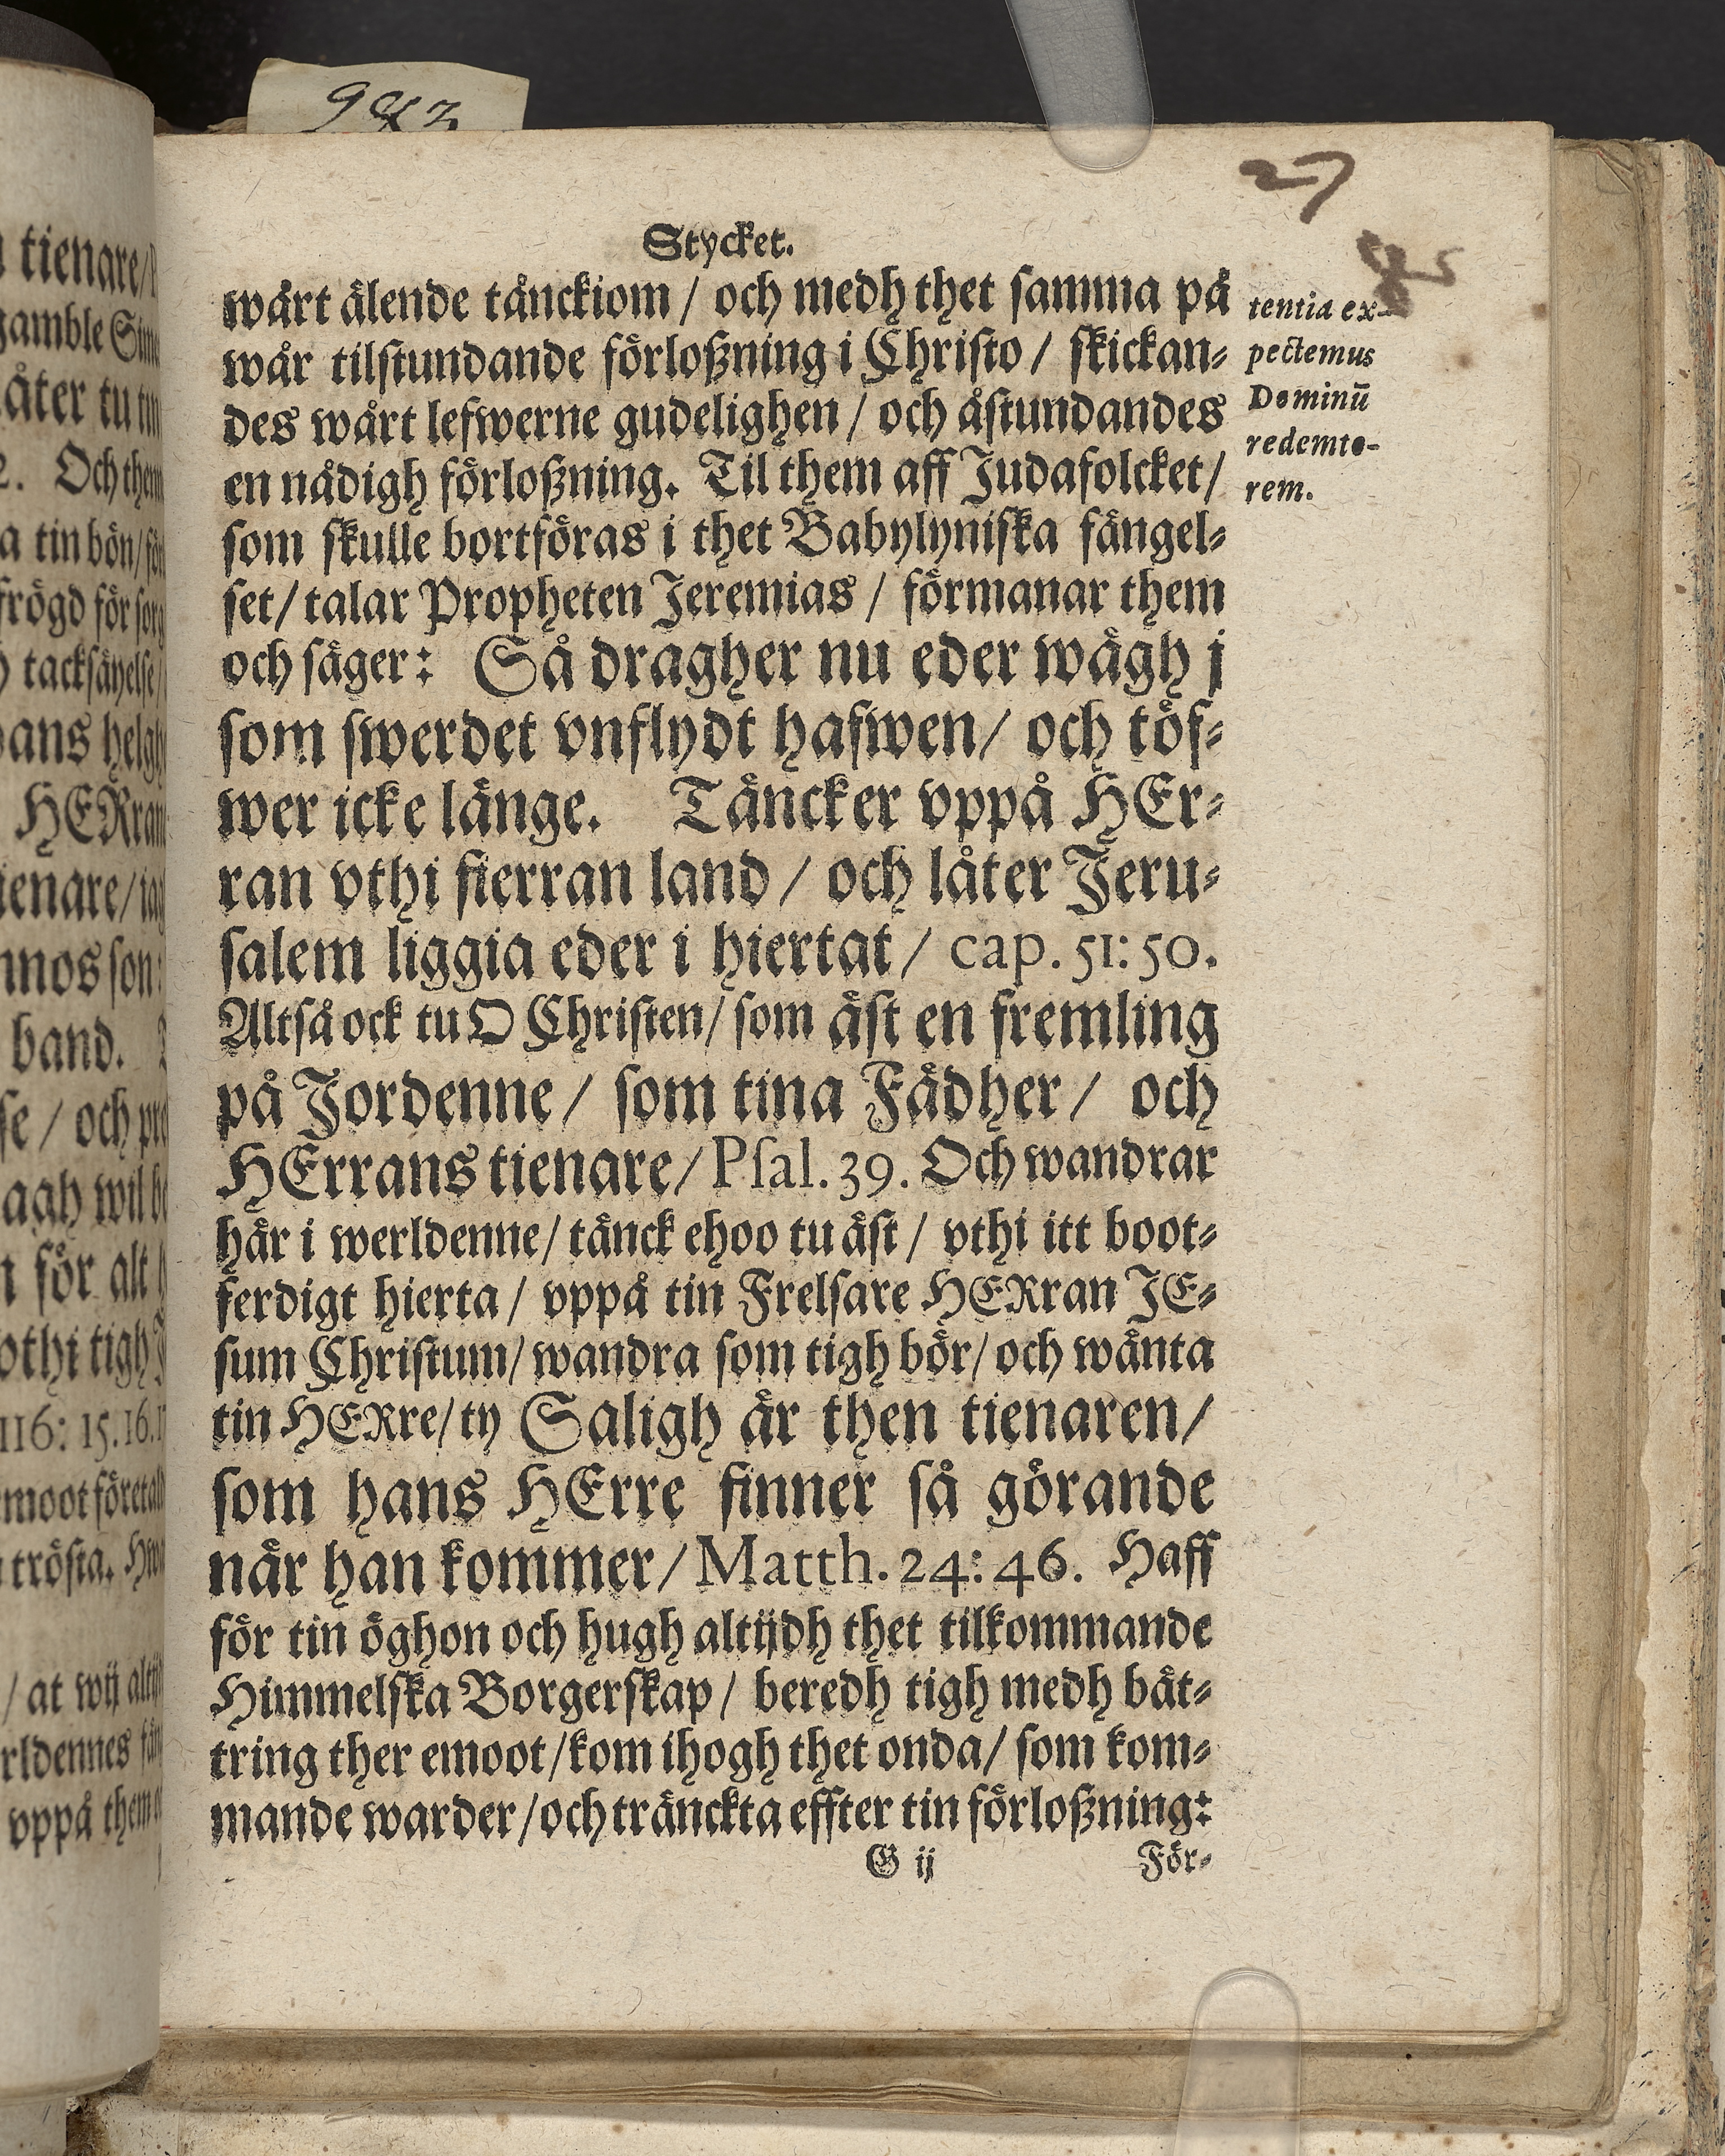 983
27
Stycket.
wårt älende tänckiom / och medh thet samma på
wår tilstundande förloßning i Christo / skickan⸗
des wårt lefwerne gudelighen / och åstundandes
en nådigh förloßning. Til them aff Judafolcket /
som skulle bortföras i thet Babylyniska fängel⸗
set / talar Propheten Jeremias / förmanar them
och säger: Så dragher nu eder wägh j
som swerdet vnflydt hafwen / och töf⸗
wer icke länge. Täncker vppå HEr⸗
ran vthi fierran land / och låter Jeru⸗
salem liggia eder i hiertat / cap. 51: 50.
Altså ock tu O Christen / som äst en fremling
på Jordenne / som tina Fädher / och
HErrans tienare / Psal. 39. Och wandrar
här i werldenne / tänck ehoo tu äst / vthi itt boot⸗
ferdigt hierta / vppå tin Frelsare HERran JE⸗
sum Christum / wandra som tigh bör / och wänta
tin HERre / ty Saligh är then tienaren /
som hans HErre finner så görande
när han kommer / Matth. 24: 46. Haff
för tin öghon och hugh altijdh thet tilkommande
Himmelska Borgerskap / beredh tigh medh bät⸗
tring ther emoot / kom ihogh thet onda / som kom⸗
mande warder / och tränckta effter tin förloßning:
G ij För⸗
tentia ex-
pectemus
Dominū
redemto-
rem.
tienare /
gamble
åter tu
2. Och them
tin bön /
frögd för
tacksäyelse /
helgh
HERran
ienare /
son:
band.
se / och
agh wil
för alt
othi tigh
116: 15. 16.
emoot
trösta.
/ at wij
rldennes
vppå them